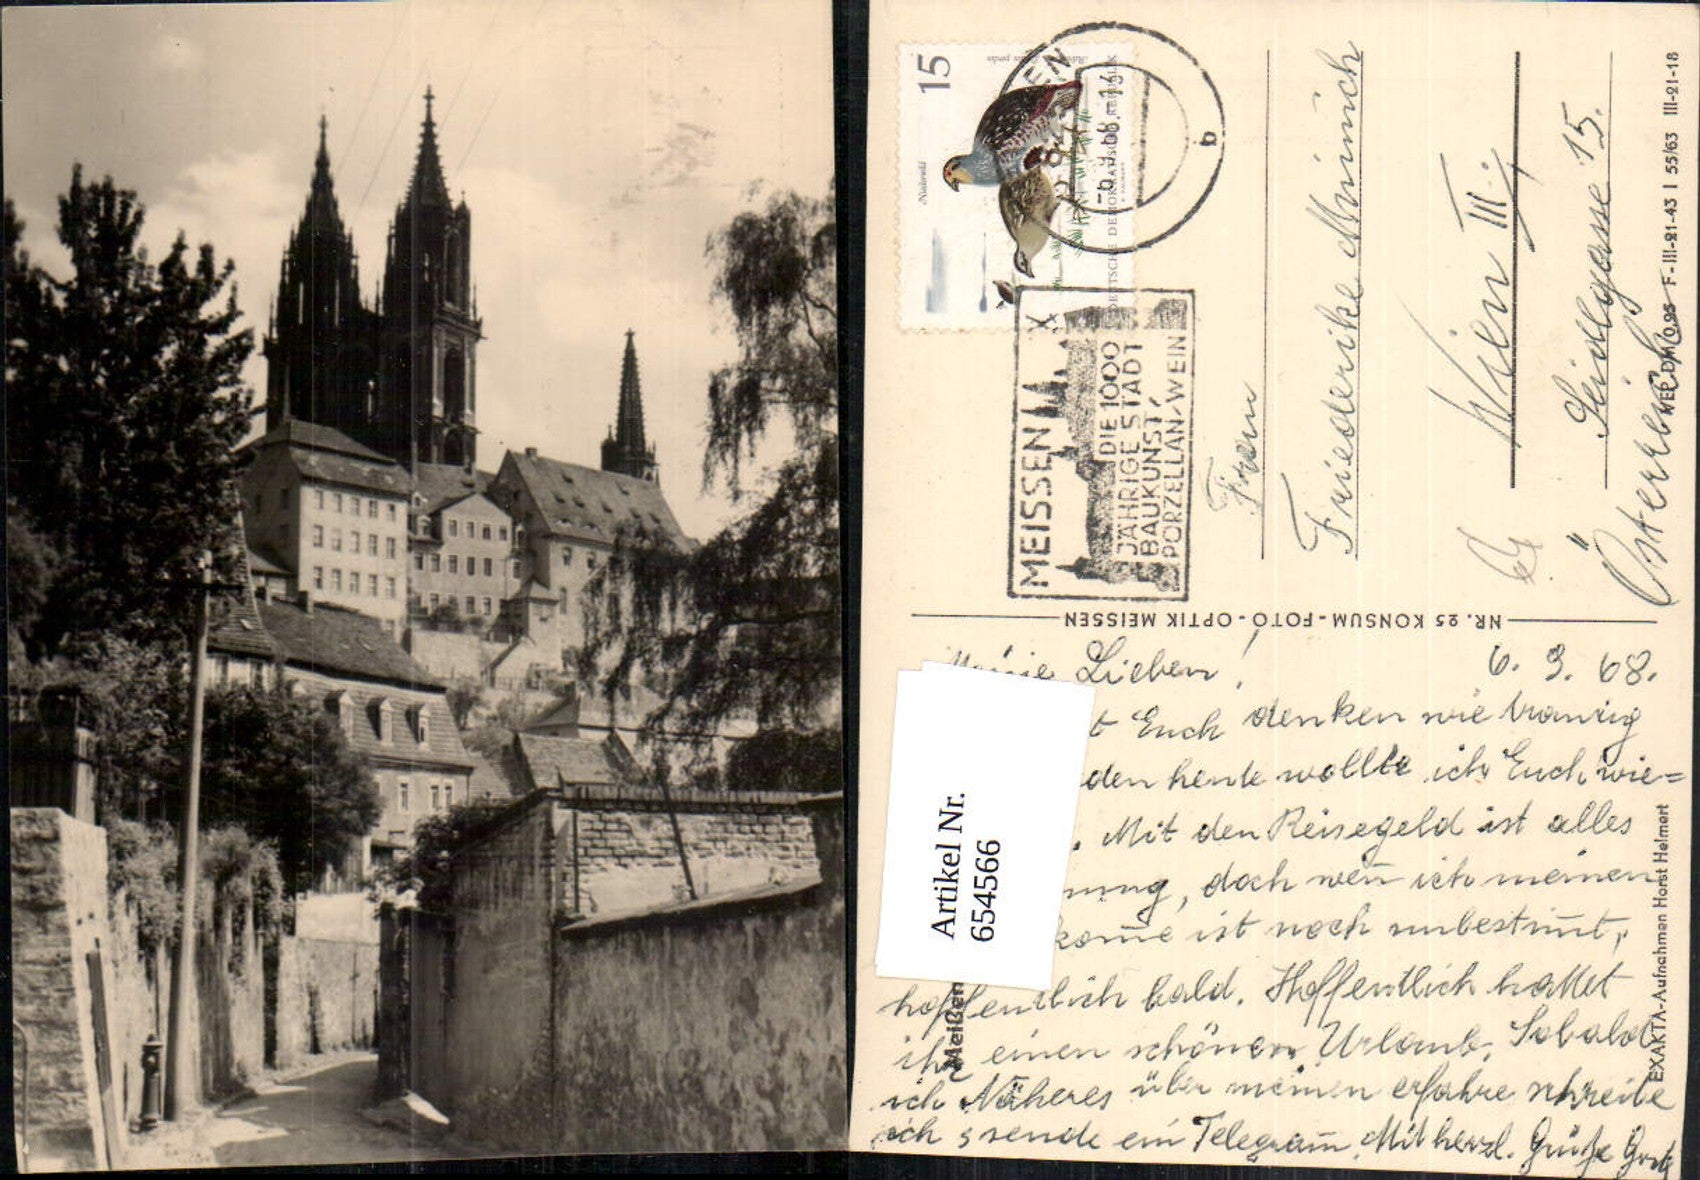 15
DEUTSCHE DEMOKRATISCHE REPUBLIK
-6.9.68.14
b
MEISSEN
DIE 1000
JÄHRIGE STADT
BAUKUNST,
PORZELLAN-WEIN
Frau
Friederike Münnich
Wien III.;
Seidlgasse 15.
Österreich
F-III-21-43 I 55/63 III-21-18
NR. 25 KONSUM-FOTO-OPTIK MEISSEN
EXAKTA-Aufnahmen Horst Helmert
Meißen
Artikel Nr.
6545566
Lieben! 6. 9. 68.
t Euch denken wie traurig
den heute wollte ich Euch wie=
. Mit den Reisegeld ist alles
nung, doch wen̄ ich meinen
kom̄e ist noch unbestim̄t,
hoffentlich bald. Hoffentlich hattet
ihr einen schönen Urlaub. Sobald
ich Näheres über meinen erfahre schreibe
ich sende ein Telegram̄. Mit herzl. Grüße